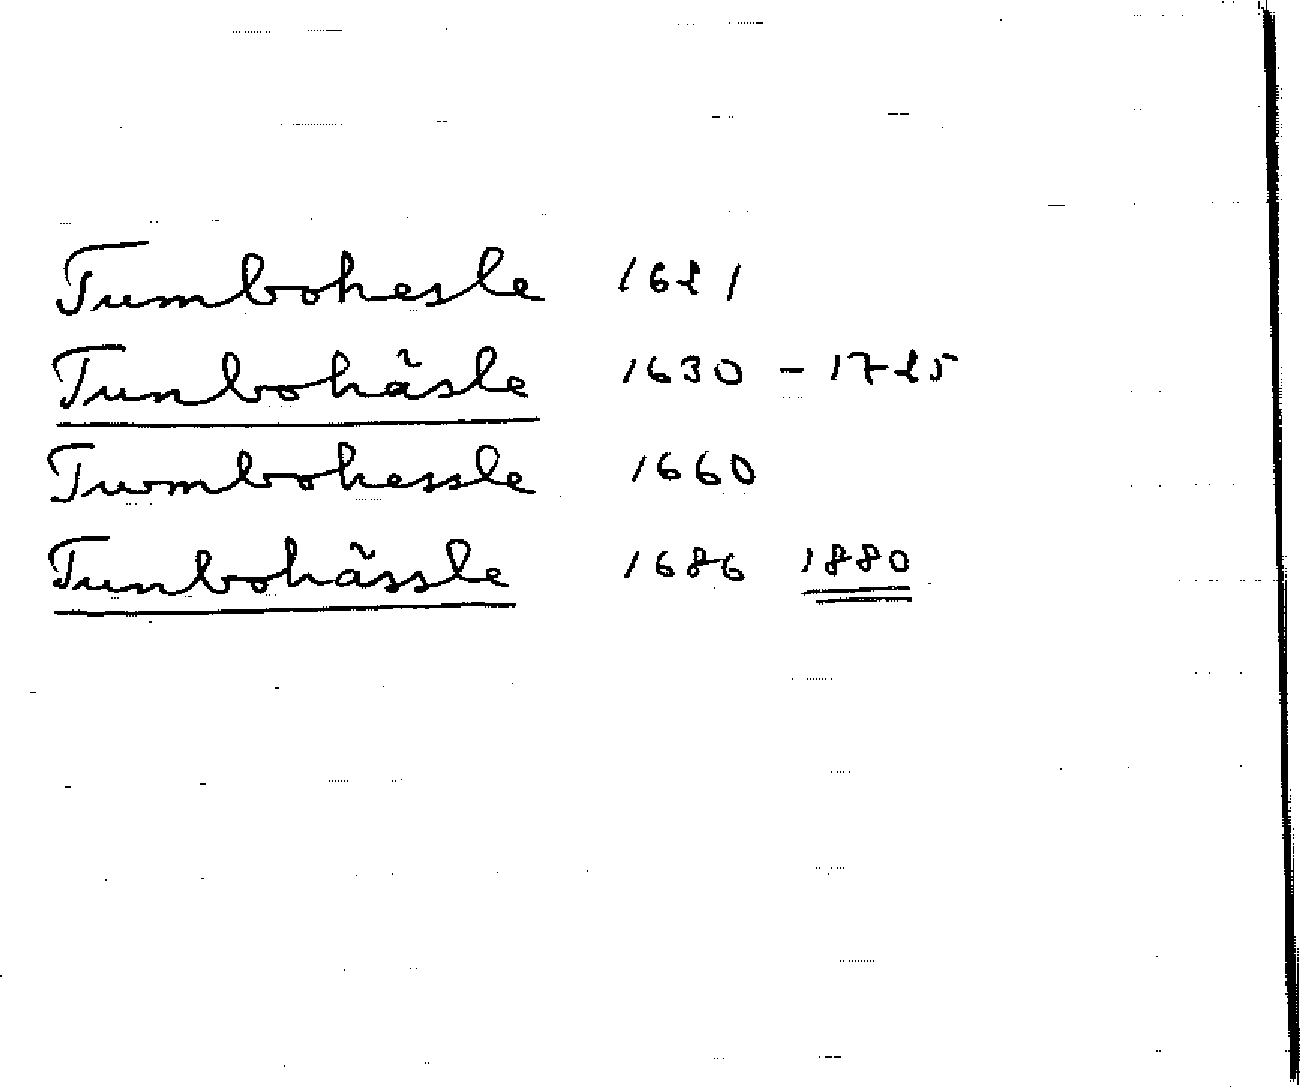 Tumbohesle 1621
Tunbohäsle 1630 - 1725
Twmbohessle 1660
Tunbohässle 1686 1880